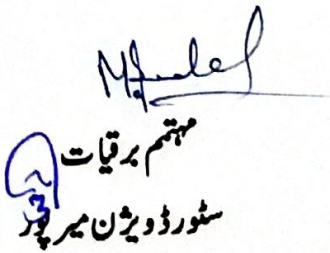 مہتمم برقیات
سٹور ڈویژن میر پور